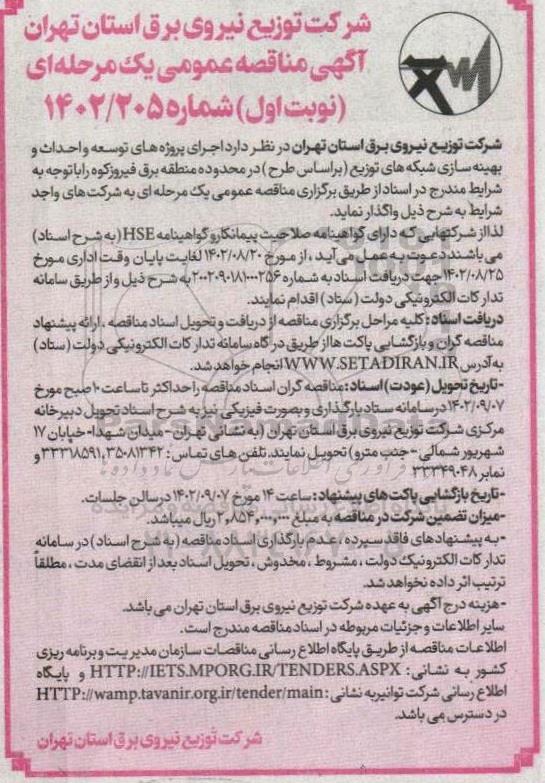 شرکت توزیع نیروی برق استان تهران
آگهی مناقصه عمومی یک مرحله‌ای
(نوبت اول) شماره ۱۴۰۲/۲۰۵
شرکت توزیع نیروی برق استان تهران در نظر دارد اجرای پروژه های توسعه و احداث و
بهینه سازی شبکه های توزیع (براساس طرح) در محدوده منطقه برق فیروزکوه را با توجه به
شرایط مندرج در اسناد از طریق برگزاری مناقصه عمومی یک مرحله ای به شرکت های واجد
شرایط به شرح ذیل واگذار نماید.
لذا از شرکتهایی که دارای گواهینامه صلاحیت پیمانکار و گواهینامه HSE (به شرح اسناد)
می باشند دعوت به عمل می آید ، از مورخ ۱۴۰۲/۰۸/۲۰ لغایت پایان وقت اداری مورخ
۱۴۰۲/۰۸/۲۵ جهت دریافت اسناد به شماره ۲۰۰۲۰۹۰۱۸۱۰۰۰۲۵۶ به شرح ذیل و از طریق سامانه
تدارکات الکترونیکی دولت (ستاد) اقدام نمایند.
دریافت اسناد: کلیه مراحل برگزاری مناقصه از دریافت و تحویل اسناد مناقصه ، ارائه پیشنهاد
مناقصه گران و بازگشایی پاکت ها از طریق درگاه سامانه تدارکات الکترونیکی دولت (ستاد)
به آدرس WWW.SETADIRAN.IR انجام خواهد شد.
-تاریخ تحویل (عودت) اسناد: مناقصه گران اسناد مناقصه را حداکثر تا ساعت ۱۰ صبح مورخ
۱۴۰۲/۰۹/۰۷ در سامانه ستاد بارگذاری و بصورت فیزیکی نیز به شرح اسناد تحویل دبیرخانه
مرکزی شرکت توزیع نیروی برق استان تهران (به نشانی تهران - میدان شهدا- خیابان ۱۷
شهریور شمالی - جنب مترو) تحویل نمایند. تلفن های تماس : ۳۵۰۸۱۳۴۲ ,۳۳۳۱۸۵۹۱ و
نمابر ۳۳۳۴۹۰۴۸
-تاریخ بازگشایی پاکت های پیشنهاد: ساعت ۱۴ مورخ ۱۴۰۲/۰۹/۰۷ در سالن جلسات.
-میزان تضمین شرکت در مناقصه به مبلغ ۲,۸۵۴,۰۰۰,۰۰۰ ریال میباشد.
-به پیشنهادهای فاقد سپرده ، عدم بارگذاری اسناد مناقصه (به شرح اسناد) در سامانه
تدارکات الکترونیک دولت ، مشروط ، مخدوش ، تحویل اسناد بعد از انقضای مدت ، مطلقاً
ترتیب اثر داده نخواهد شد.
-هزینه درج آگهی به عهده شرکت توزیع نیروی برق استان تهران می باشد.
سایر اطلاعات و جزئیات مربوطه در اسناد مناقصه مندرج است.
اطلاعات مناقصه از طریق پایگاه اطلاع رسانی مناقصات سازمان مدیریت و برنامه ریزی
کشور به نشانی: HTTP://IETS.MPORG.IR/TENDERS.ASPX و پایگاه
اطلاع رسانی شرکت توانیر به نشانی: HTTP://wamp.tavanir.org.ir/tender/main
در دسترس می باشد.
شرکت توزیع نیروی برق استان تهران